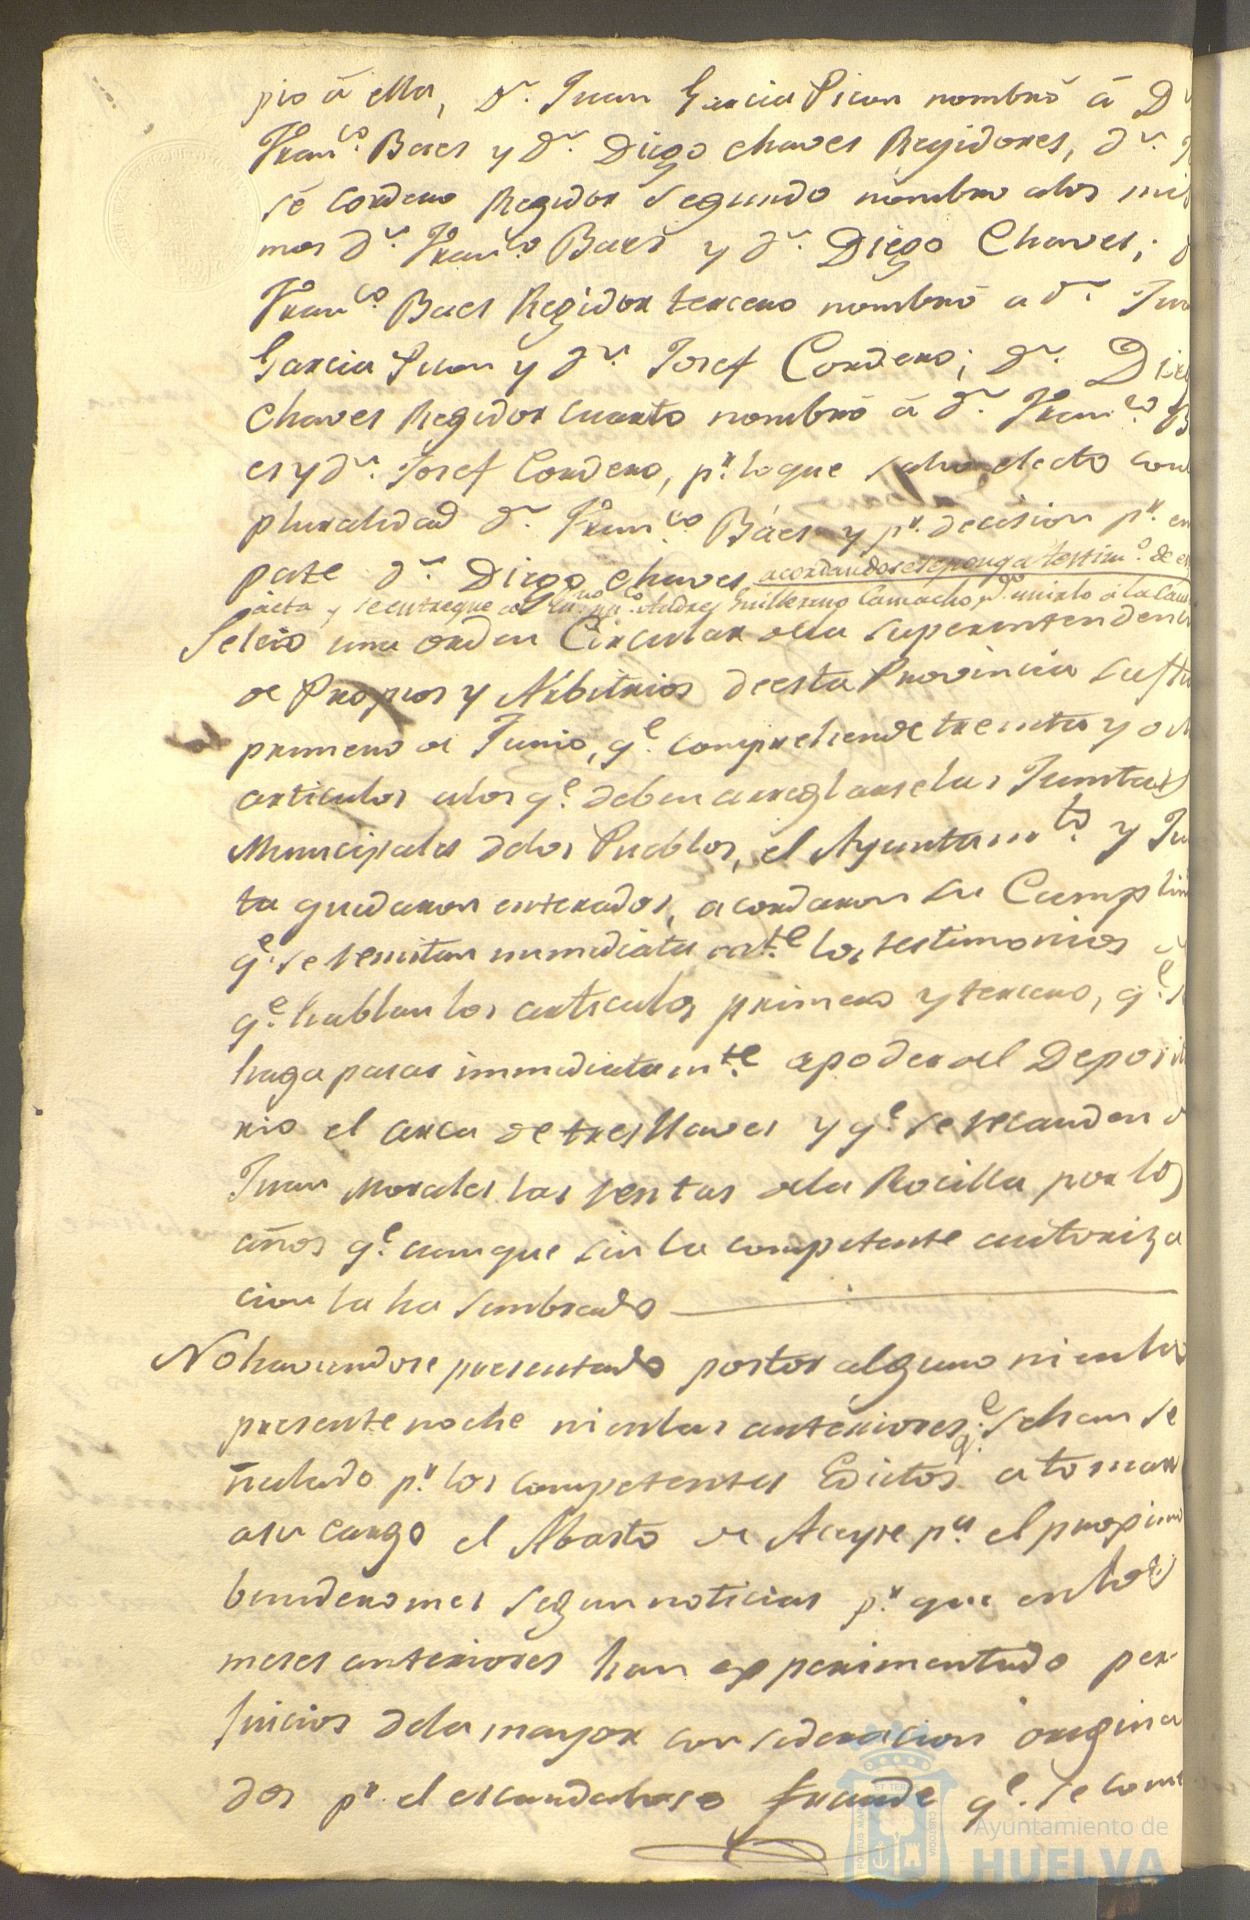 pio á ella, Dn. Juan Garcia Picon nombró á Dn
Franco. Baes y Dn. Diego Chaves Regidores, Dn. 
sé Cordero Regidor segundo nombro alos mis
mos Dn. Franco. Baes y Dn. Diego Chaves; D
Franco. Baes Regidor tercero nombró a Dn. Jua
Garcia Picon y Dn. Josef Cordero; Dn. Dieg
Chaves Regidor cuarto nombró á Dn. Franco. B
es y Dn. Josef Cordero, pr. lo que salio electo con
pluralidad Dn. Franco. Báes y pr. decision pr. em
pate Dn. Diego Chaves acordandose se ponga testimo. de es
acta y se entregue al Andres Guillermo Camacho pa. unirlo á la Cau
Se leio una orden Circular dela superintendenci
de Propios y Arbitrios de esta Provincia su fha
primero de Junio, qe. comprehende treinta y och
articulos alos qe. deben arreglarse las Juntas
Municipales delos Pueblos, el Ayuntamto. y Ju
ta quedaron enterados, acordaron su Cumplim
qe. se remitan inmediatamte. los testimonios d
qe. hablan los articulos primero y tercero, qe. s
haga pasar inmediatamte. a poder del Deposit
rio el arca de tres llaves y qe. se recauden d
Juan Morales las rentas dela Rocilla por los
años qe. aunque sin la competente autoriza
cion la ha sembrado
No haviendose presentado postor alguno ni en la
presente noche ni en las anteriores qe. se han se
ñalado pr. los competentes Edictos a tomar
a su cargo el Abasto de Aceyte pa. el proximo
benidero mes segun noticias pr. que en los
meses anteriores han experimentado per-
juicios dela mayor consideracion origina
dos pr. el escandaloso fraude qe. se come
Ayuntamiento de
HUELVA